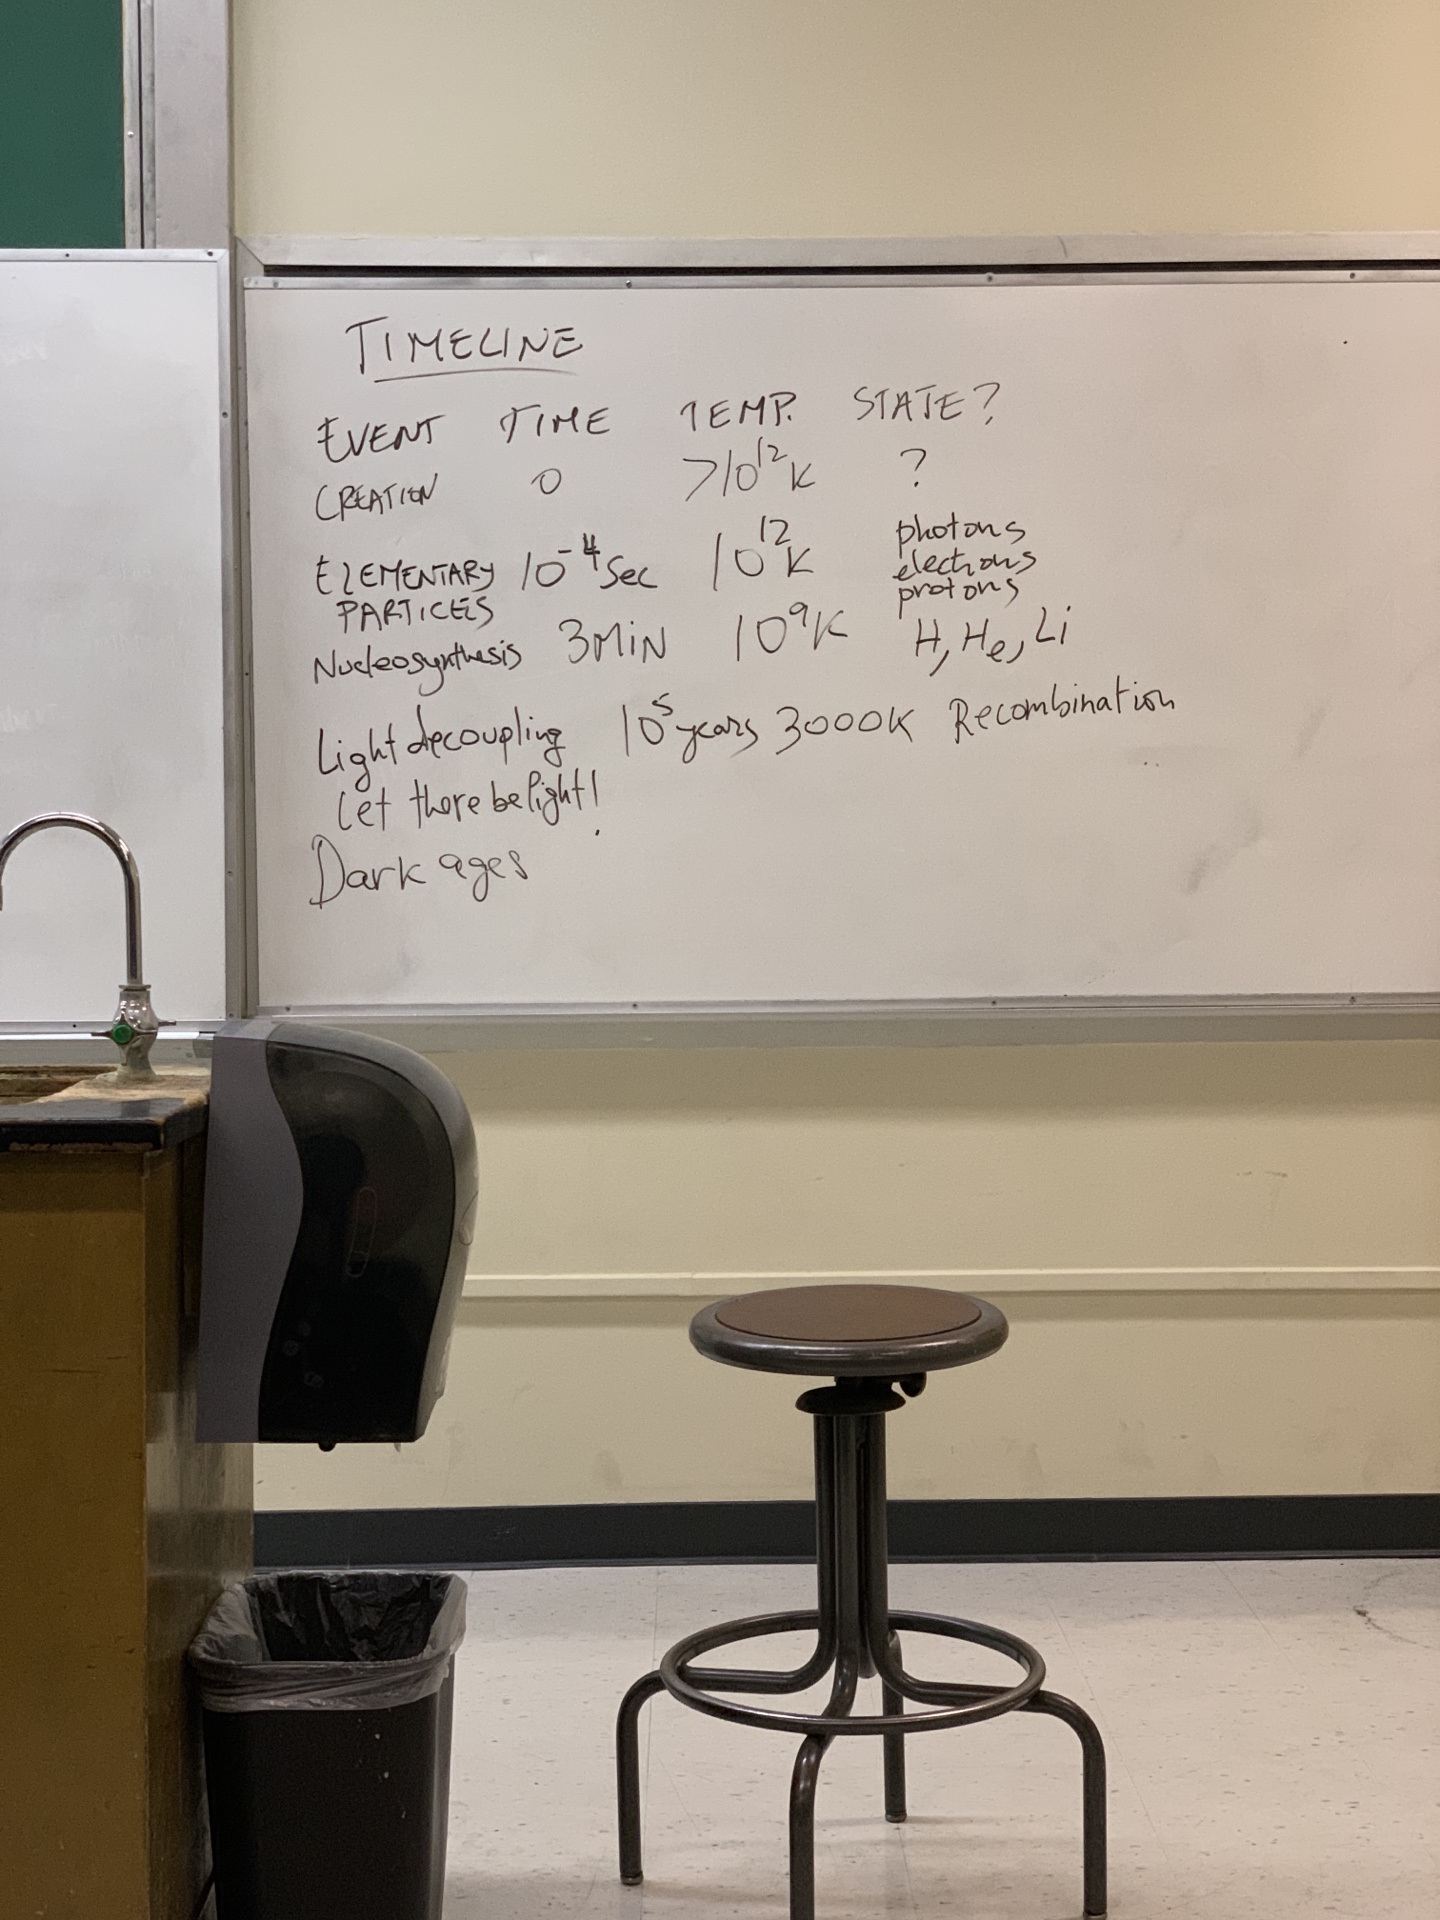 TIMELINE
EVENT TIME TEMP. STATE?
CREATION 0 >10¹²K ?
ELEMENTARY 10⁻⁴ Sec 10¹²K photons
electrons
protons
PARTICES
Nucleosynthesis 3 MiN 10⁹K H, He, Li
Light decoupling 10⁵ years 3000K Recombination
Let there be light!
Dark ages